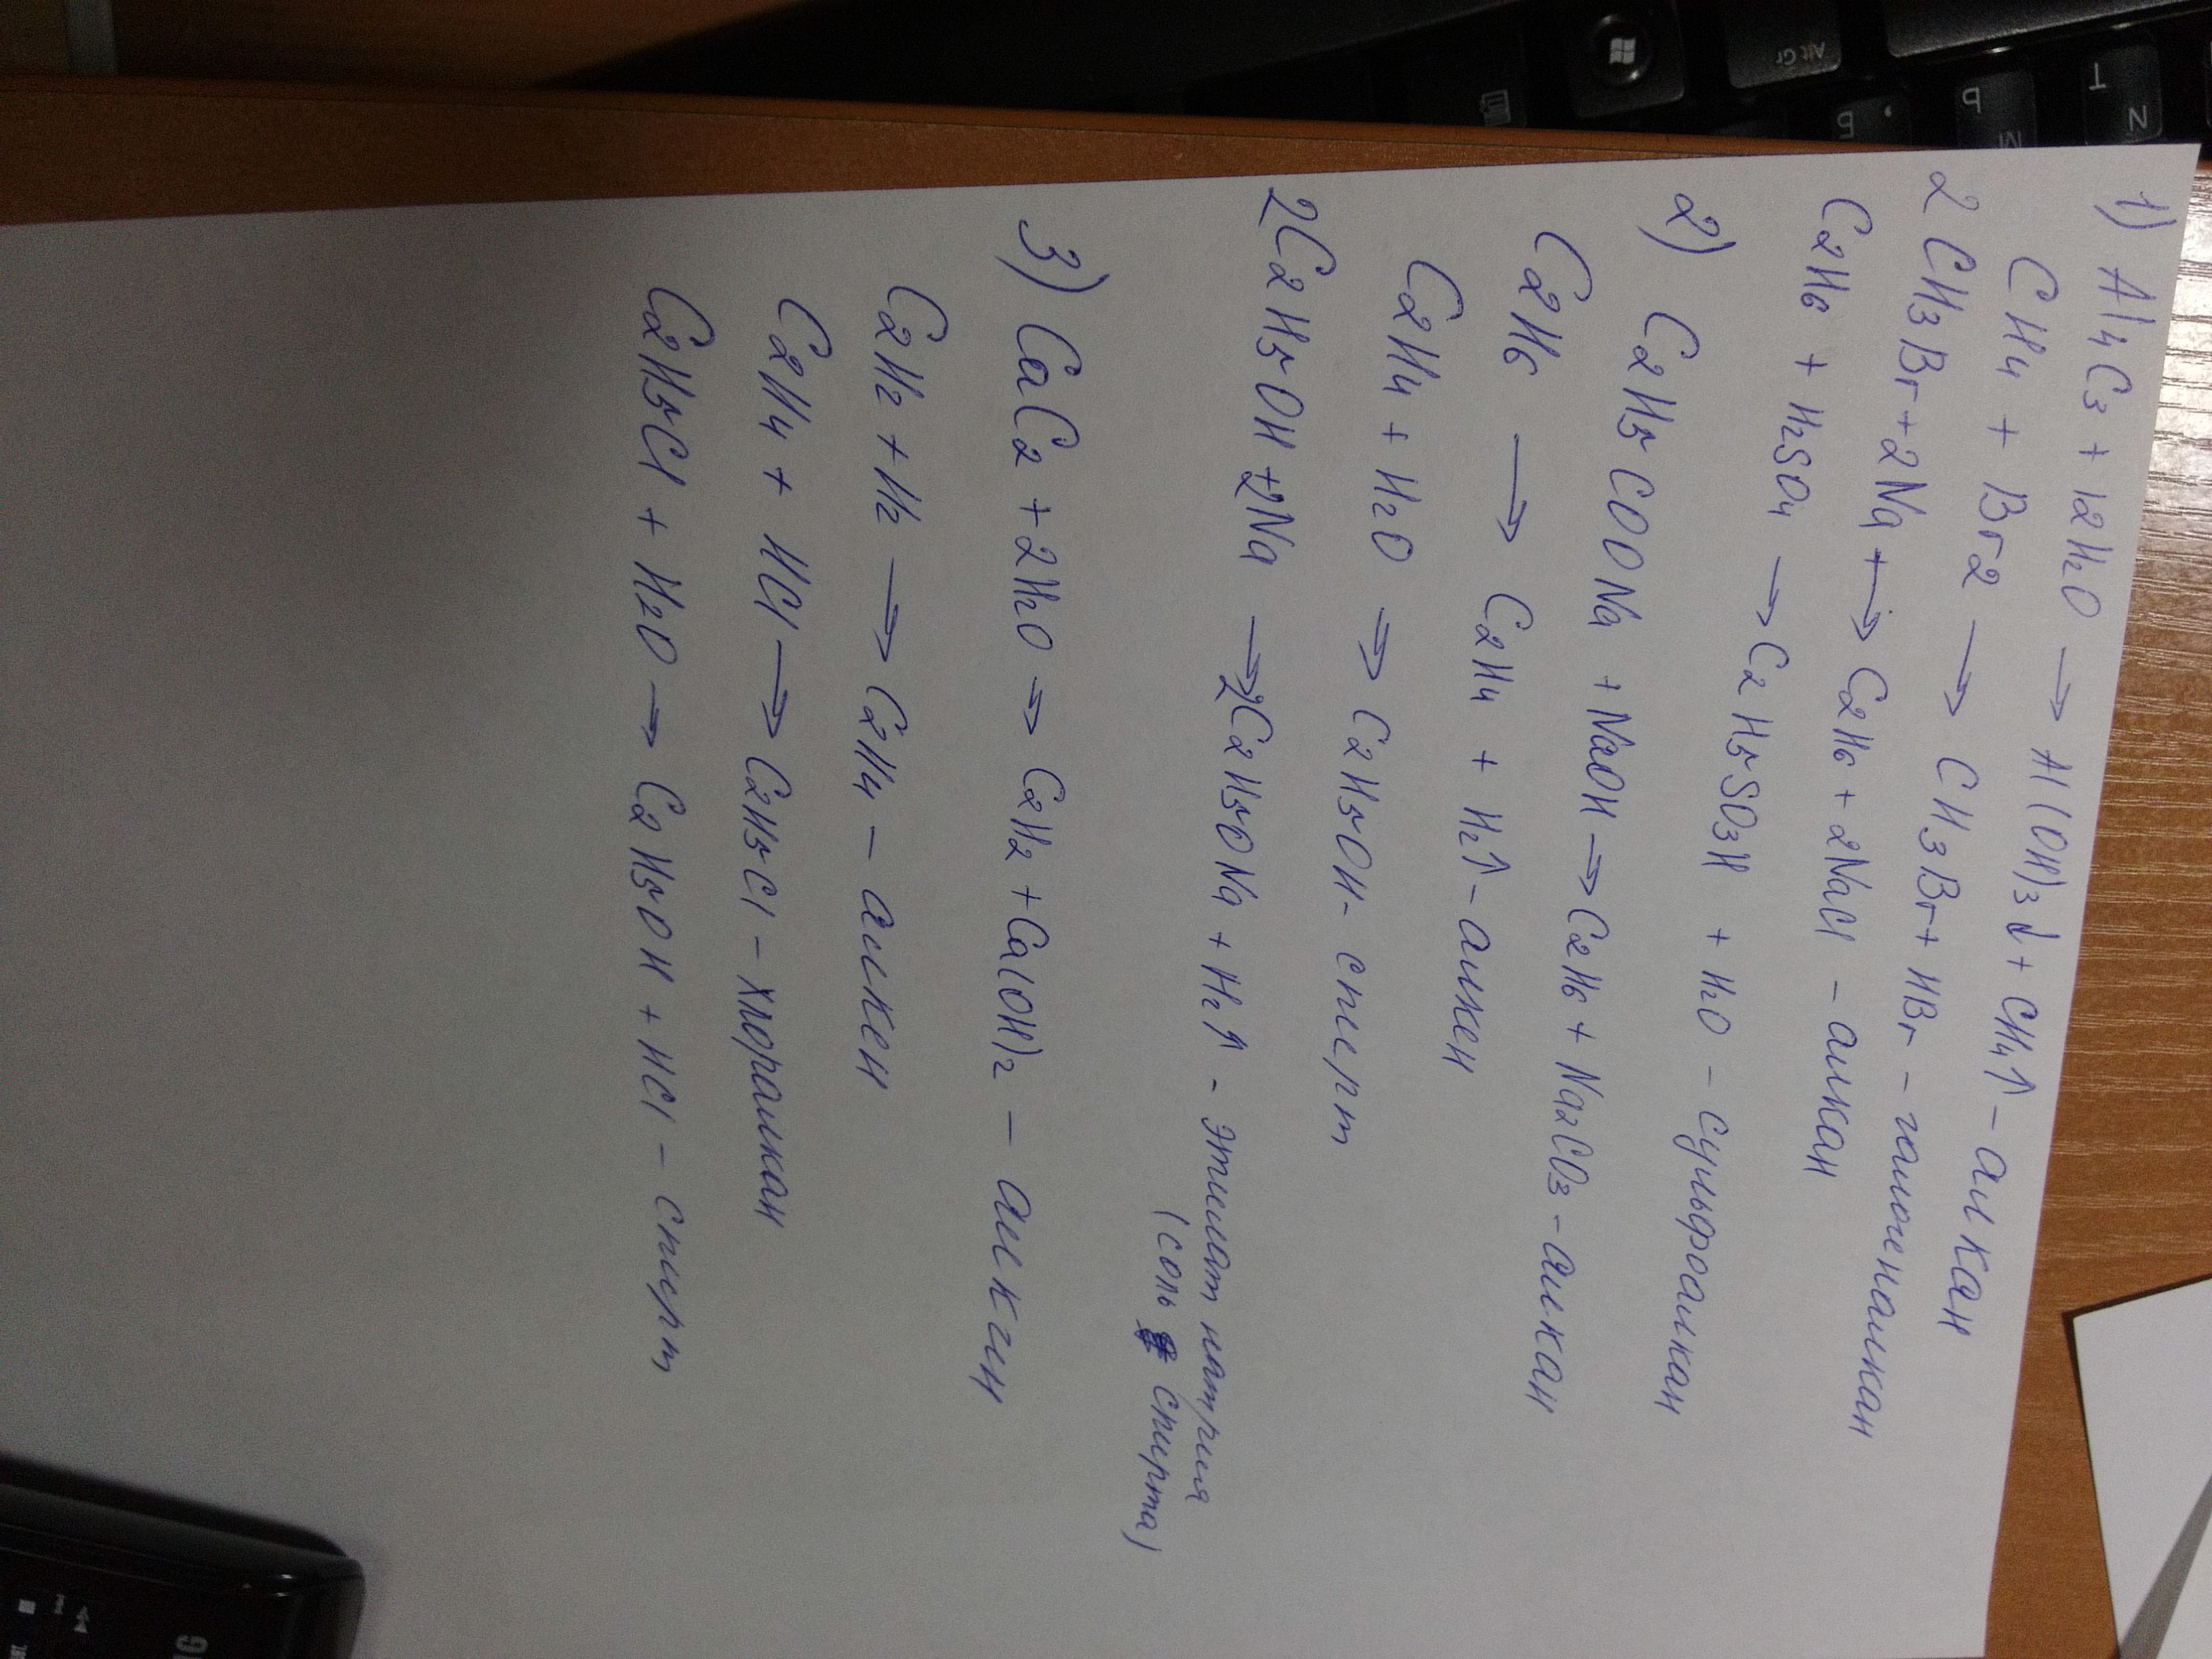 1) Al4C3 + 12H2O → Al(OH)3↓ + CH4↑ - алкан
CH4 + Br2 → CH3Br + HBr - галогеналкан
2CH3Br + 2Na → C2H6 + 2NaCl - алкан
C2H6 + H2SO4 → C2H5SO3H + H2O - сульфоалкан
2) C2H5COONa + NaOH → C2H6 + Na2CO3 - алкан
C2H6 → C2H4 + H2↑ - алкен
C2H4 + H2O → C2H5OH - спирт
2C2H5OH + 2Na → 2C2H5ONa + H2↑ - этилат натрия
(соль спирта)
3) CaC2 + 2H2O → C2H2 + Ca(OH)2 - алкин
C2H2 + H2 → C2H4 - алкен
C2H4 + HCl → C2H5Cl - хлоралкан
C2H5Cl + H2O → C2H5OH + HCl - спирт
Alt Gr
Ь
М
Б
Т
N